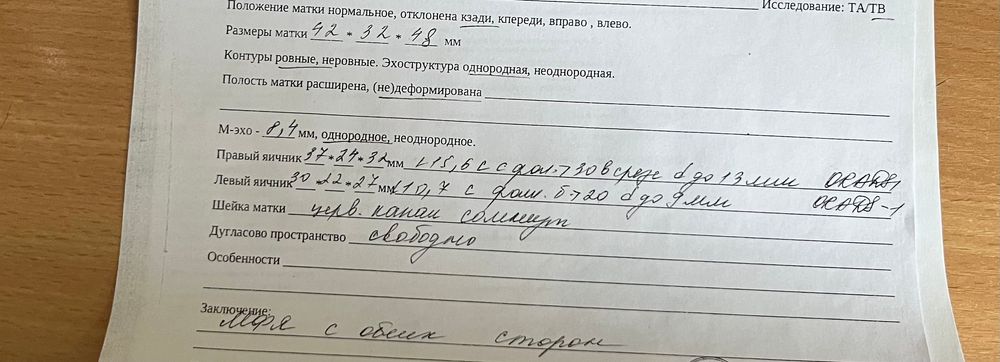 Исследование: ТА/ТВ
Положение матки нормальное, отклонена кзади, кпереди, вправо , влево.
Размеры матки 42 * 32 * 48 мм
Контуры ровные, неровные. Эхоструктура однородная, неоднородная.
Полость матки расширена, (не)деформирована
М-эхо - 8,4 мм, однородное, неоднородное.
Правый яичник 37*24*32мм 15,6 с фол. >30 в срезе d до 13 мм ORADS1
Левый яичник 30*22*27мм с фол. >20 d до 9мм ORADS-1
Шейка матки церв. канал сомкнут
Дугласово пространство свободно
Особенности
Заключение:
МФЯ с обеих сторон